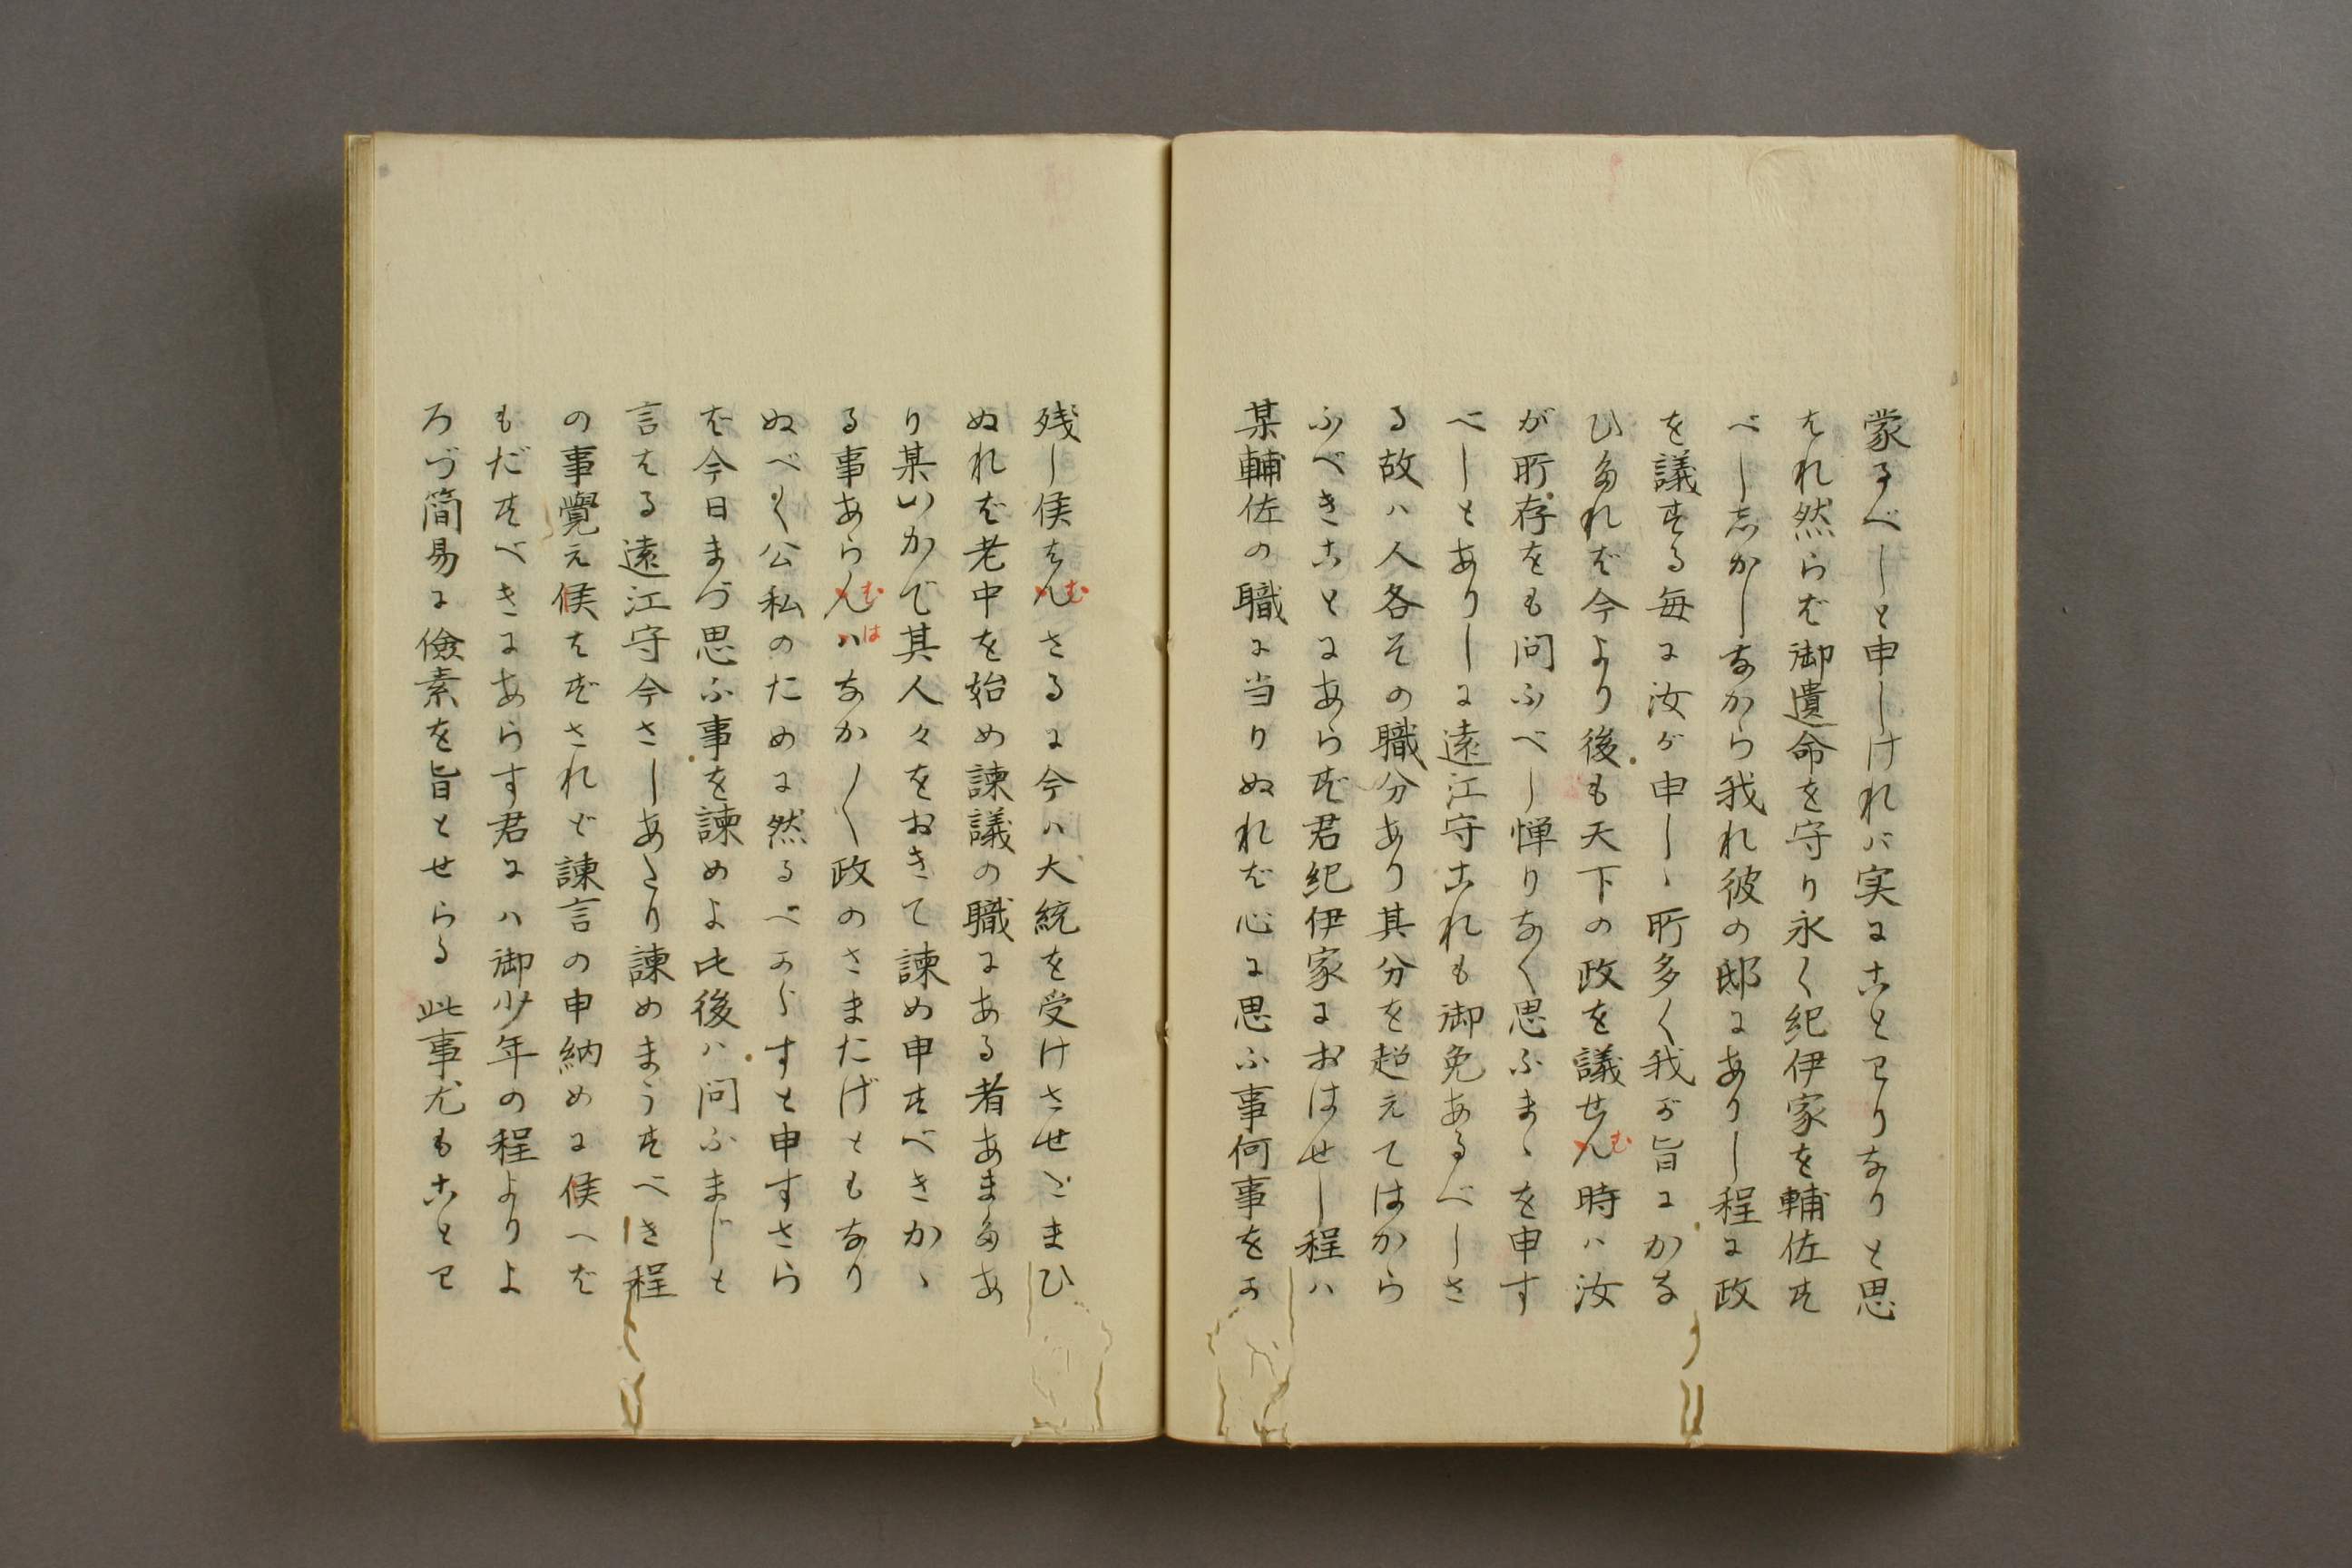 蒙るべしと申しければ実にことわりなりと思
はれ然らば御遺命を守り永く紀伊家を輔佐す
べし志かしながら我れ彼の邸にありし程に政
を議する毎に汝が申しゝ所多く我が旨にかな
ひたれば今より後も天下の政を議せん(む)時ハ汝
が所存をも問ふべし憚りなく思ふまゝを申す
べしとありしに遠江守これも御免あるべしさ
る故ハ人各その職分あり其分を超えてはから
ふべきことにあらず君紀伊家におはせし程ハ
某輔佐の職に当りぬれば心に思ふ事何事をか
残し侯はん(む)さるに今ハ大統を受けさせ給まひ
ぬれば老中を始め諫議の職にある者あまたあ
り某いかで其人々をおきて諫め申すべきかゝ
る事あらん(む)ハ(は)なか〳〵政のさまたげともなり
ぬべく公私のために然るべからすと申すさら
ば今日まづ思ふ事を諫めよ此後ハ問ふまじと
言はる遠江守今さしあたり諫めまうすべき程
の事覺え候はずされど諫言の申納めに候へば
もだすべきにあらす君にハ御少年の程よりよ
ろづ簡易に儉素を旨とせらる此事尤もことわ